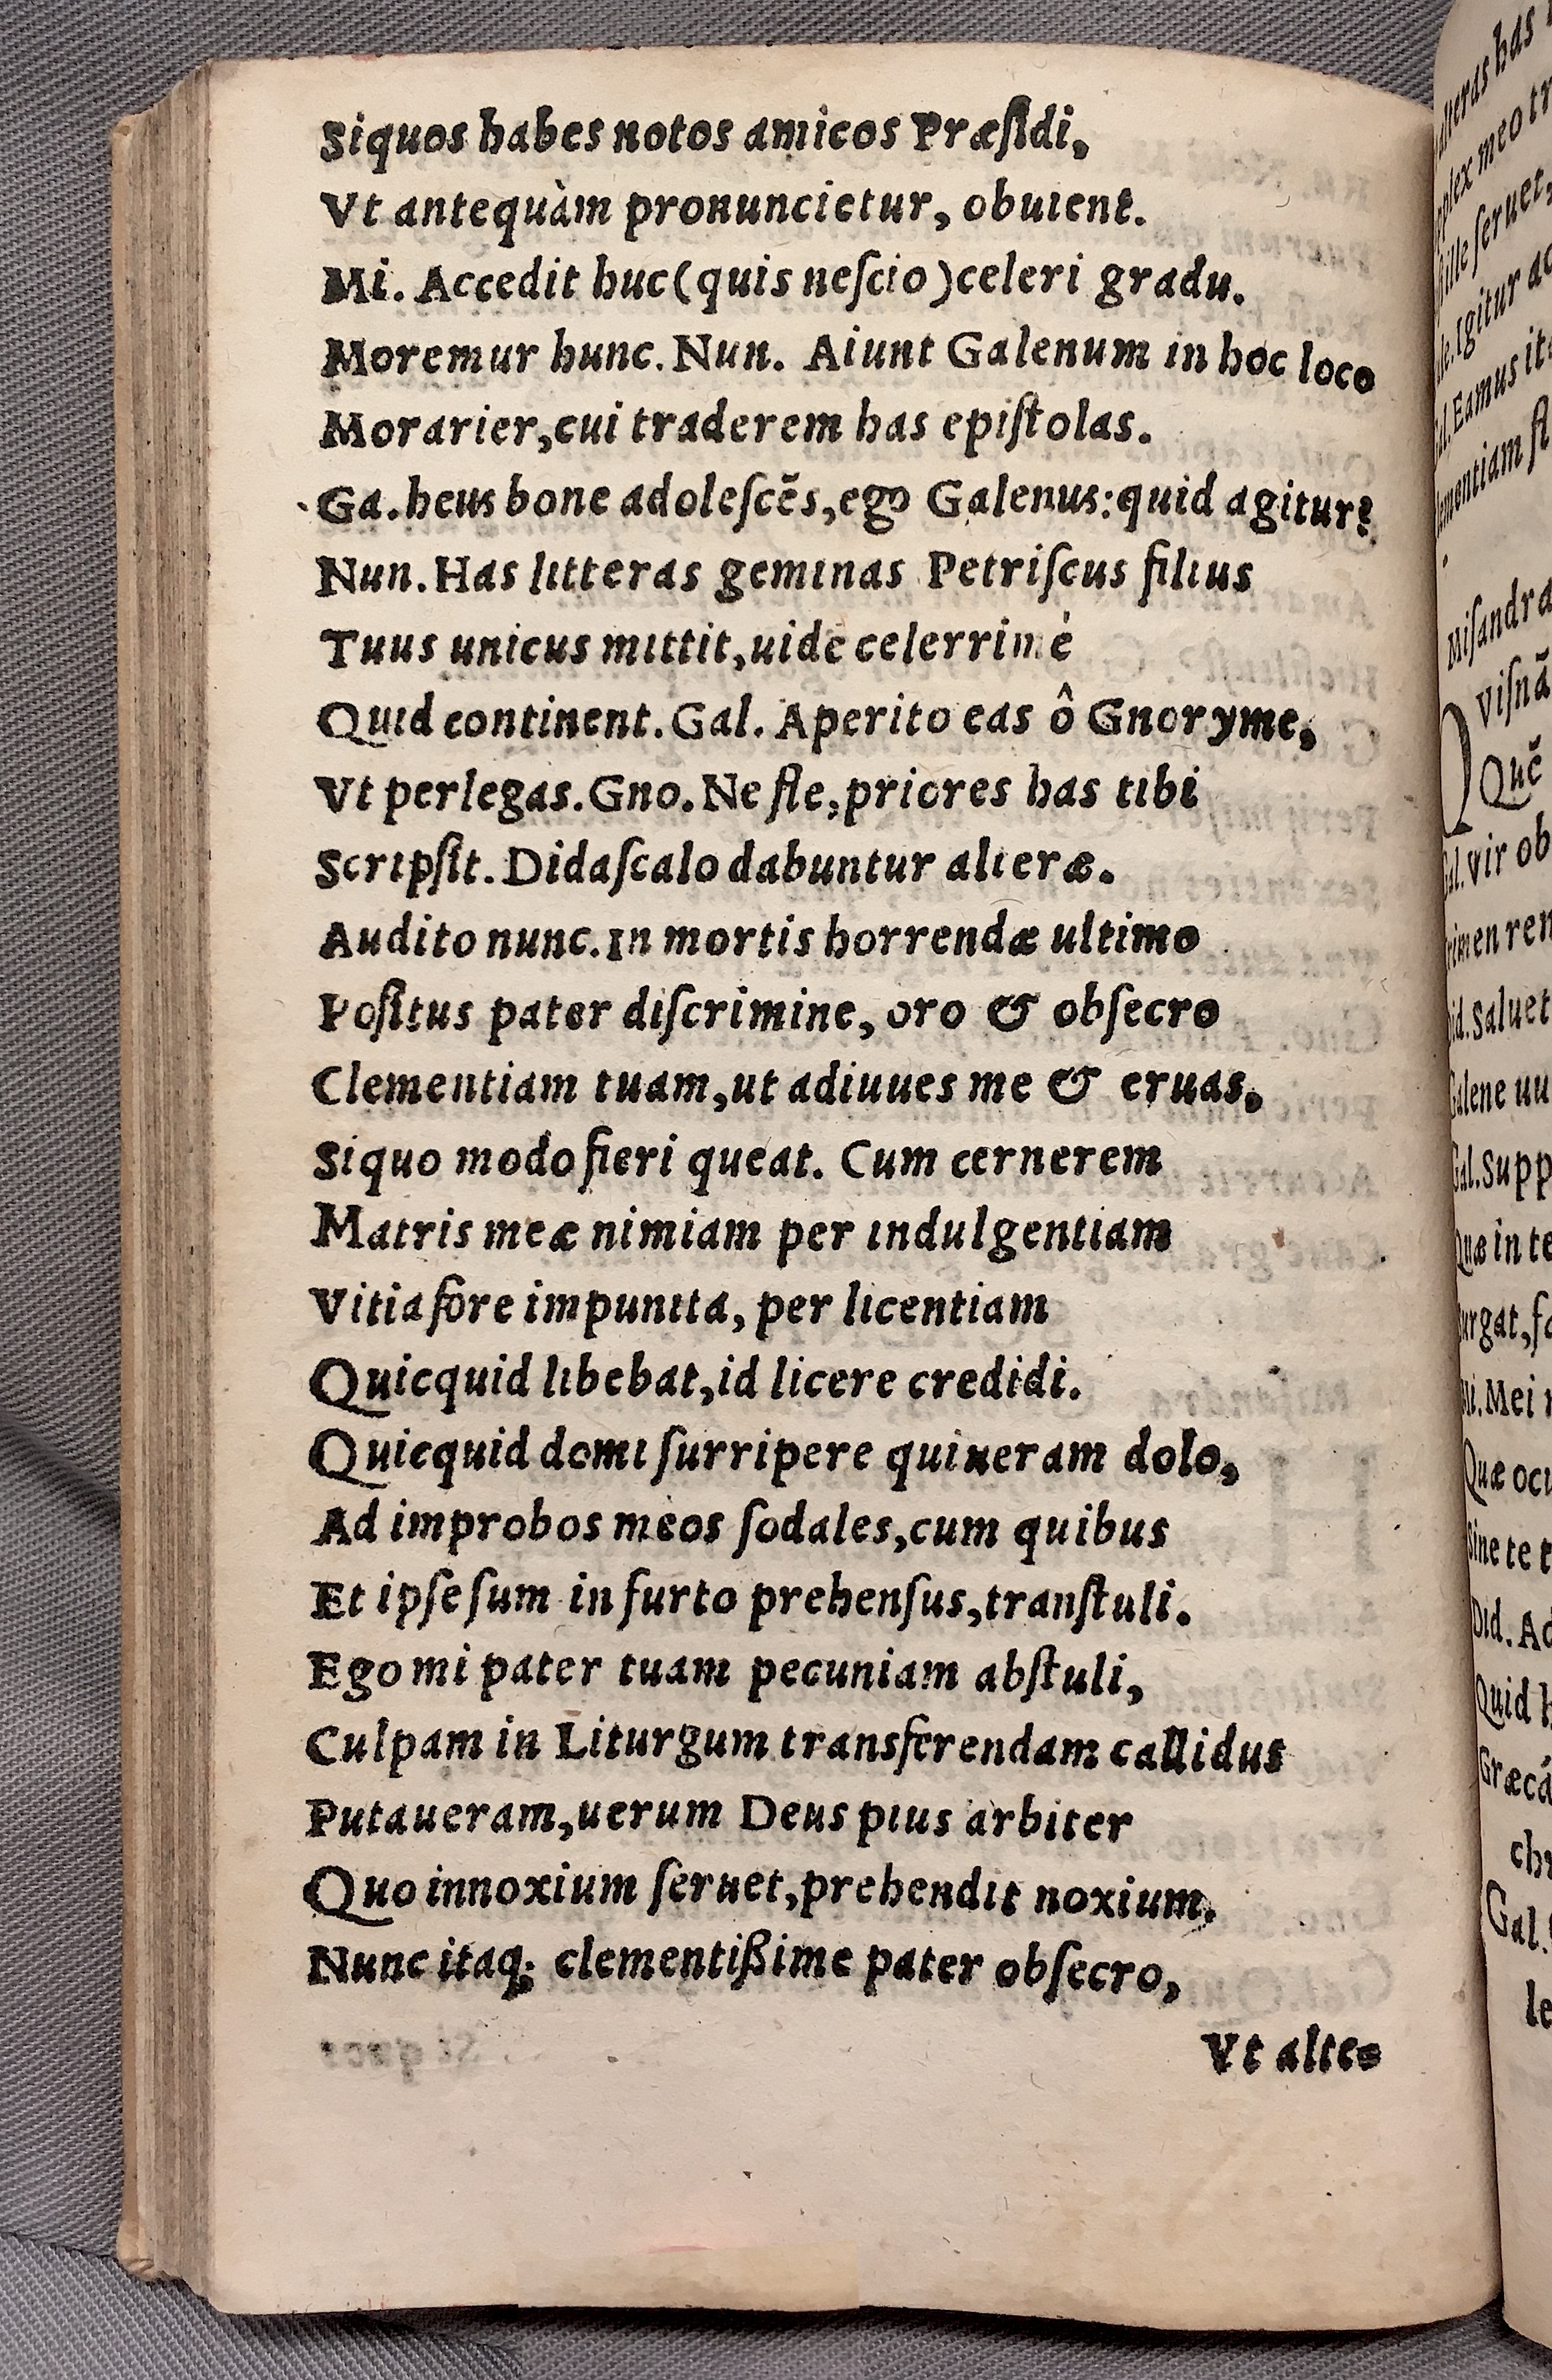 Siquos habes notos amicos Præſidi,
Vt antequàm pronuncietur, obuient.
Mi. Accedit huc (quis neſcio) celeri gradu.
Moremur hunc. Nun. Aiunt Galenum in hoc loco
Morarier, cui traderem has epiſtolas.
Ga. heus bone adoleſcẽs, ego Galenus: quid agitur?
Nun. Has litteras geminas Petriſcus filius
Tuus unicus mittit, uide celerrimè
Quid continent. Gal. Aperito eas ô Gnoryme,
Vt perlegas. Gno. Ne fle, priores has tibi
Scripſit. Didaſcalo dabuntur alteræ.
Audito nunc. In mortis horrendæ ultimo
Poſitus pater diſcrimine, oro & obſecro
Clementiam tuam, ut adiuues me & eruas,
Siquo modo fieri queat. Cum cernerem
Matris meæ nimiam per indulgentiam
Vitia fore impunita, per licentiam
Quicquid libebat, id licere credidi.
Quicquid domi ſurripere quiueram dolo,
Ad improbos meos ſodales, cum quibus
Et ipſe ſum in furto prehenſus, tranſtuli.
Ego mi pater tuam pecuniam abſtuli,
Culpam in Liturgum transferendam callidus
Putaueram, uerum Deus pius arbiter
Quo innoxium ſeruet, prehendit noxium.
Nunc itaq; clementißime pater obſecro,
Vt alte-
alteras has
plex meo tr
ille ſeruet,
Igitur ac
Eamus it
mentiam fl
Miſandra
Viſnã
Quẽ
Gal. Vir ob
imen ren
id. Saluet
Galene uu
Gal. Supp
Quæ in te
urgat, fa
Mi. Mei
Quæ ocu
Sine te t
Did. Ad
Quid h
Græcã
chr
Gal.
le